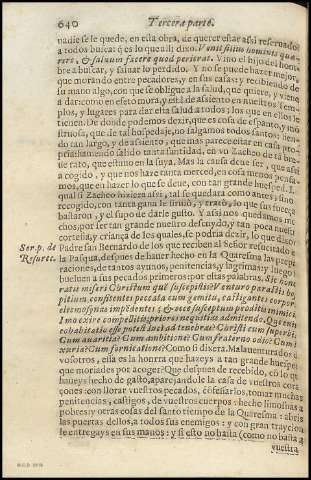 640 Tercera parte.
nadie se le puede, en esta obra, de querer estar assi reseruado
a todos buscar: q̃ es lo que alli dixo. Venit filius hominis quæ-
rere, & saluum facere quod perierat. Vino el hijo del hom-
bre a buscar, y saluar lo perdido. Y no se puede hazer mejor,
que morando entre pecadores, y en sus casas: y recibiendo de
su mano algo, con que se obligue a la salud, que quiere, y viene
a dar: como en esto mora, y està de assiento en nuestros tem-
plos, y lugares para dar esta salud a todos; los que en ellos le
tienen. De donde podemos dezir, que es cosa de espanto, y mõ
struosa, que de tal hospedaje, no salgamos todos santos: sien-
do tan largo, y de assiento, que mas parece estar en casa pro
pria: haziendo saltado tanta santidad, en vn Zacheo de tã bre-
ue rato, que estuuo en la suya. Mas la causa deue ser, que assi
a cogido, y que nos haze tanta merced, en cosa menos pensa-
mos, que en hazer lo que se deue, con tan grande huesped. I
qual si Zacheo hiziera assi, tal se quedara como antes: sino
recogido, con tanta gana le siruiò, y tratò, lo que sus fuerças
bastaron, y el supo de darle gusto. Y assi nos quedamos mu-
chos, por ser tan grande nuestro descuydo, y tan poca nuestra
cortesia, y criança de los quales, se podria dezir, lo que dixo
Ser. p. de Padre san Bernardo de los que reciben al Señor resuscitado e
Resurre. la Pasqua, despues de hauer hecho en la Quaresma las prepa
raciones, de tantos ayunos, penitencias, y lagrimas: y luego
bueluen a sus pecados primeros: por estas palabras. Sic hono
ratis miseri Christum quẽ suscepistis? Venturo parastis ho-
pitium consitentes peccata cum gemitu, castigantes corpora
eleemosynas impẽdentes; & ecce susceptum proditis inimicis.
Imo exire compellitis priores nequitias admittendo. Quæ enim
cohabitatio esse potest luci ad tenebras? Christi cum superbia
Cum auaritia? Cum ambitione? Cum fraterno odio? Cum
xuria? Cum fornicatione? Como si dixera. Malauenturados d
vosotros, esta es la honrra que hazeys a tan grande huesped
que moriades por acoger? Que despues de recebido, cõ lo qu
hauays hecho de gasto, aparejandole la casa de vuestros cora
çones: con llorar vuestros pecados, cõfessarlos, tomar muchas
penitencias, castigos, de vuestros cuerpos: hecho limosnas a
pobres: y otras cosas del santo tiempo de la Quaresma: abris
las puertas dellos, a todos sus enemigos: y con gran traycion
le entregays en sus manos: y si esto no basta (como no basta a
vuestra